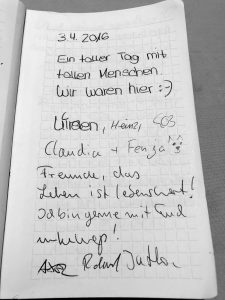 3.4.2016
Ein toller Tag mit
tollen Menschen.
Wir waren hier :-)
Heinz,
Claudia + Fenja
Freunde, das
Leben ist lebenswert!
Ich bin gerne mit Euch
unterwegs!